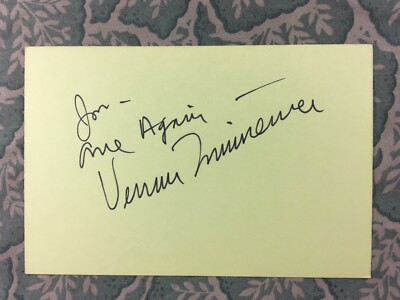 Jon –
once Again –
Vernon Zimmerman